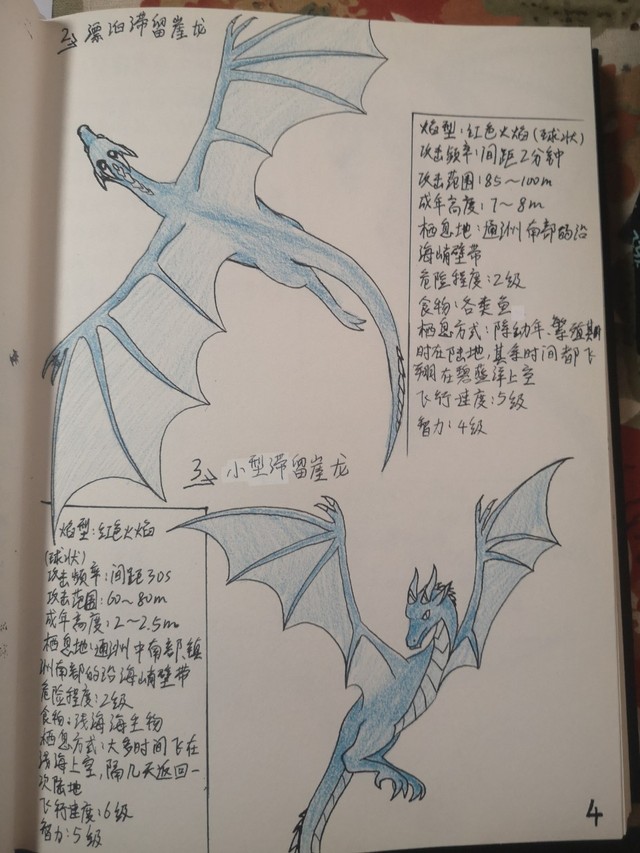 2→ 漂泊滞留崖龙
焰型:红色火焰(球状)
攻击频率:间距2分钟
攻击范围:85~100m
成年高度:7~8m
栖息地:通洲南部的沿
海峭壁带
危险程度:2级
食物:各类鱼
栖息方式:除幼年、繁殖期
时在陆地,其余时间都飞
翔在碧蓝洋上空
飞行速度:5级
智力:4级
3→ 小型滞留崖龙
焰型:红色火焰
(球状)
攻击频率:间距30s
攻击范围:60~80m
成年高度:2~2.5m
栖息地:通洲中南部、镇
洲南部的沿海峭壁带
危险程度:2级
食物:浅海海生物
栖息方式:大多时间飞在
浅海上空,隔几天返回一
次陆地
飞行速度:6级
智力:5级
4